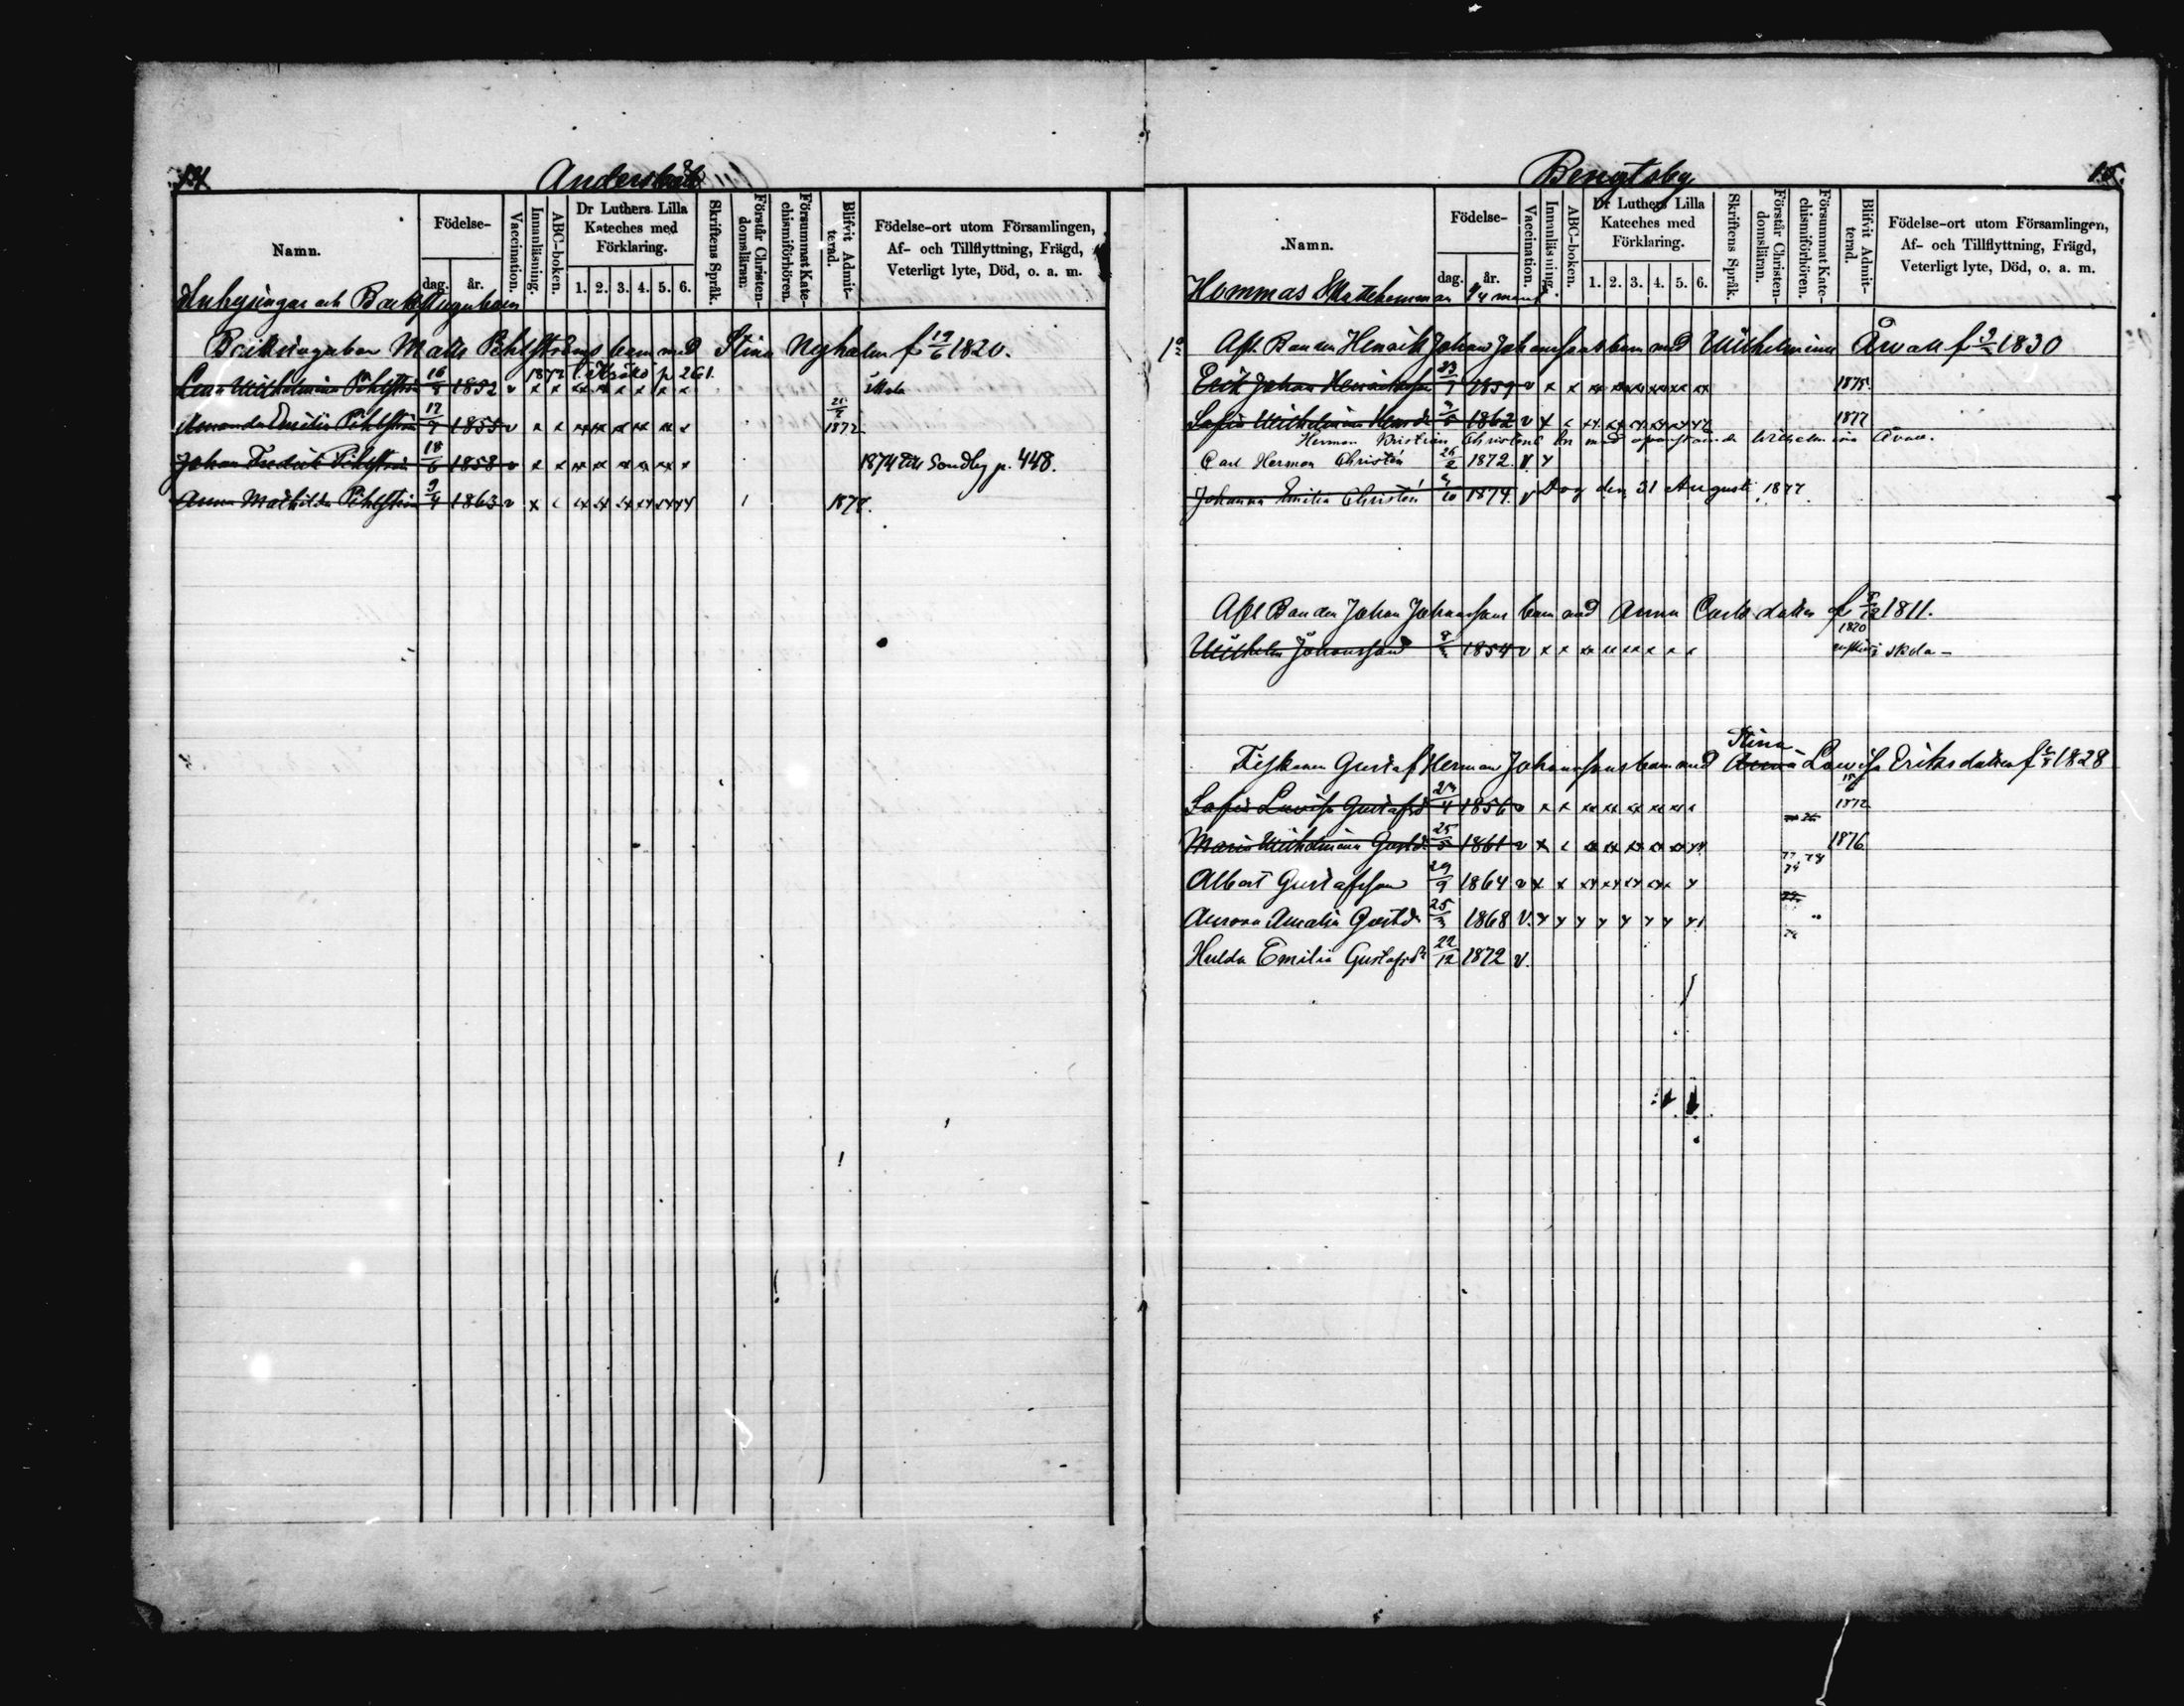 14
Andersböle
Namn.
Födelse-
dag.
år.
Vaccination.
Innanläsning.
ABC-boken.
Dr Luthers Lilla Kateches med Förklaring.
1. 2. 3. 4. 5. 6.
Skriftens Språk.
Förstår Christendomsläran.
Försummat Katechismiförhören.
Blifvit Admitterad.
Födelse-ort utom Församlingen,
Af- och Tillflyttning, Frägd,
Veterligt lyte, Död, o. a. m.
Inhysingar och Backstuguboen
Matts Pihlströms barn med Stina Nyholm f 19/6 1820.
1872 p 261.
Lena Wilhelmina Pihlström 16/8 1852 v x x xx xx x x x x
Amanda Emilia Pihlström 17/7 1855 v x x xx xx xx xx xx x 1872
Johan Fredrik Pihlström 18/6 1858 v x x xx xx xx xx xx x 1874 till Sondby p. 448.
Anna Mathilda Pihlström 9/4 1863 v x x xx xx xx xx xx xx 1 1878.
15.
Bengtsby
Namn.
Födelse-
dag.
år.
Vaccination.
Innanläsning.
ABC-boken.
Dr Luthers Lilla Kateches med Förklaring.
1. 2. 3. 4. 5. 6.
Skriftens Språk.
Förstår Christendomsläran.
Försummat Katechismiförhören.
Blifvit Admitterad.
Födelse-ort utom Församlingen,
Af- och Tillflyttning, Frägd,
Veterligt lyte, Död, o. a. m.
Hommas Skattehemman 1/4 mant
1o Afl. Bonden Henrik Johan Johanssons barn med Wilhelmina f 1830
Erik Johan Henriksson 23/7 1859 v x x xx xx xx xx xx xx 1875.
Sofia Wilhelmina Henrsdr 1862 v x x xx xx xx xx xx xx 1877
Herman Kristian Christens bn med ofvanstående Wilhelmina
Carl Herman Christén 26/2 1872. v x
Johanna Emilia Christén 1874. v Dog den 31 Augusti 1877.
Afl Bonden Johan Johanssons barn med Anna Carlsdotter f 1811.
Wilhelm Johansson 1854 v x x xx xx xx x x x
Fiskaren Gustaf Herman Johanssons barn med Stina Lovisa Eriksdotter f 1828
Sofia Lovisa Gustafsd 1856 v x x xx xx xx xx xx x 1872
Maria Wilhelmina Gustd. 25/5 1861 v x x xx xx xx xx xx xx 1876
Albert Gustafsson 29/9 1864 v x x xx xx xx xx x x
Aurora Amalia Gustdr 25/3 1868 v. x x x x x x x x
Hulda Emilia Gustafsdr 22/12 1872 v.